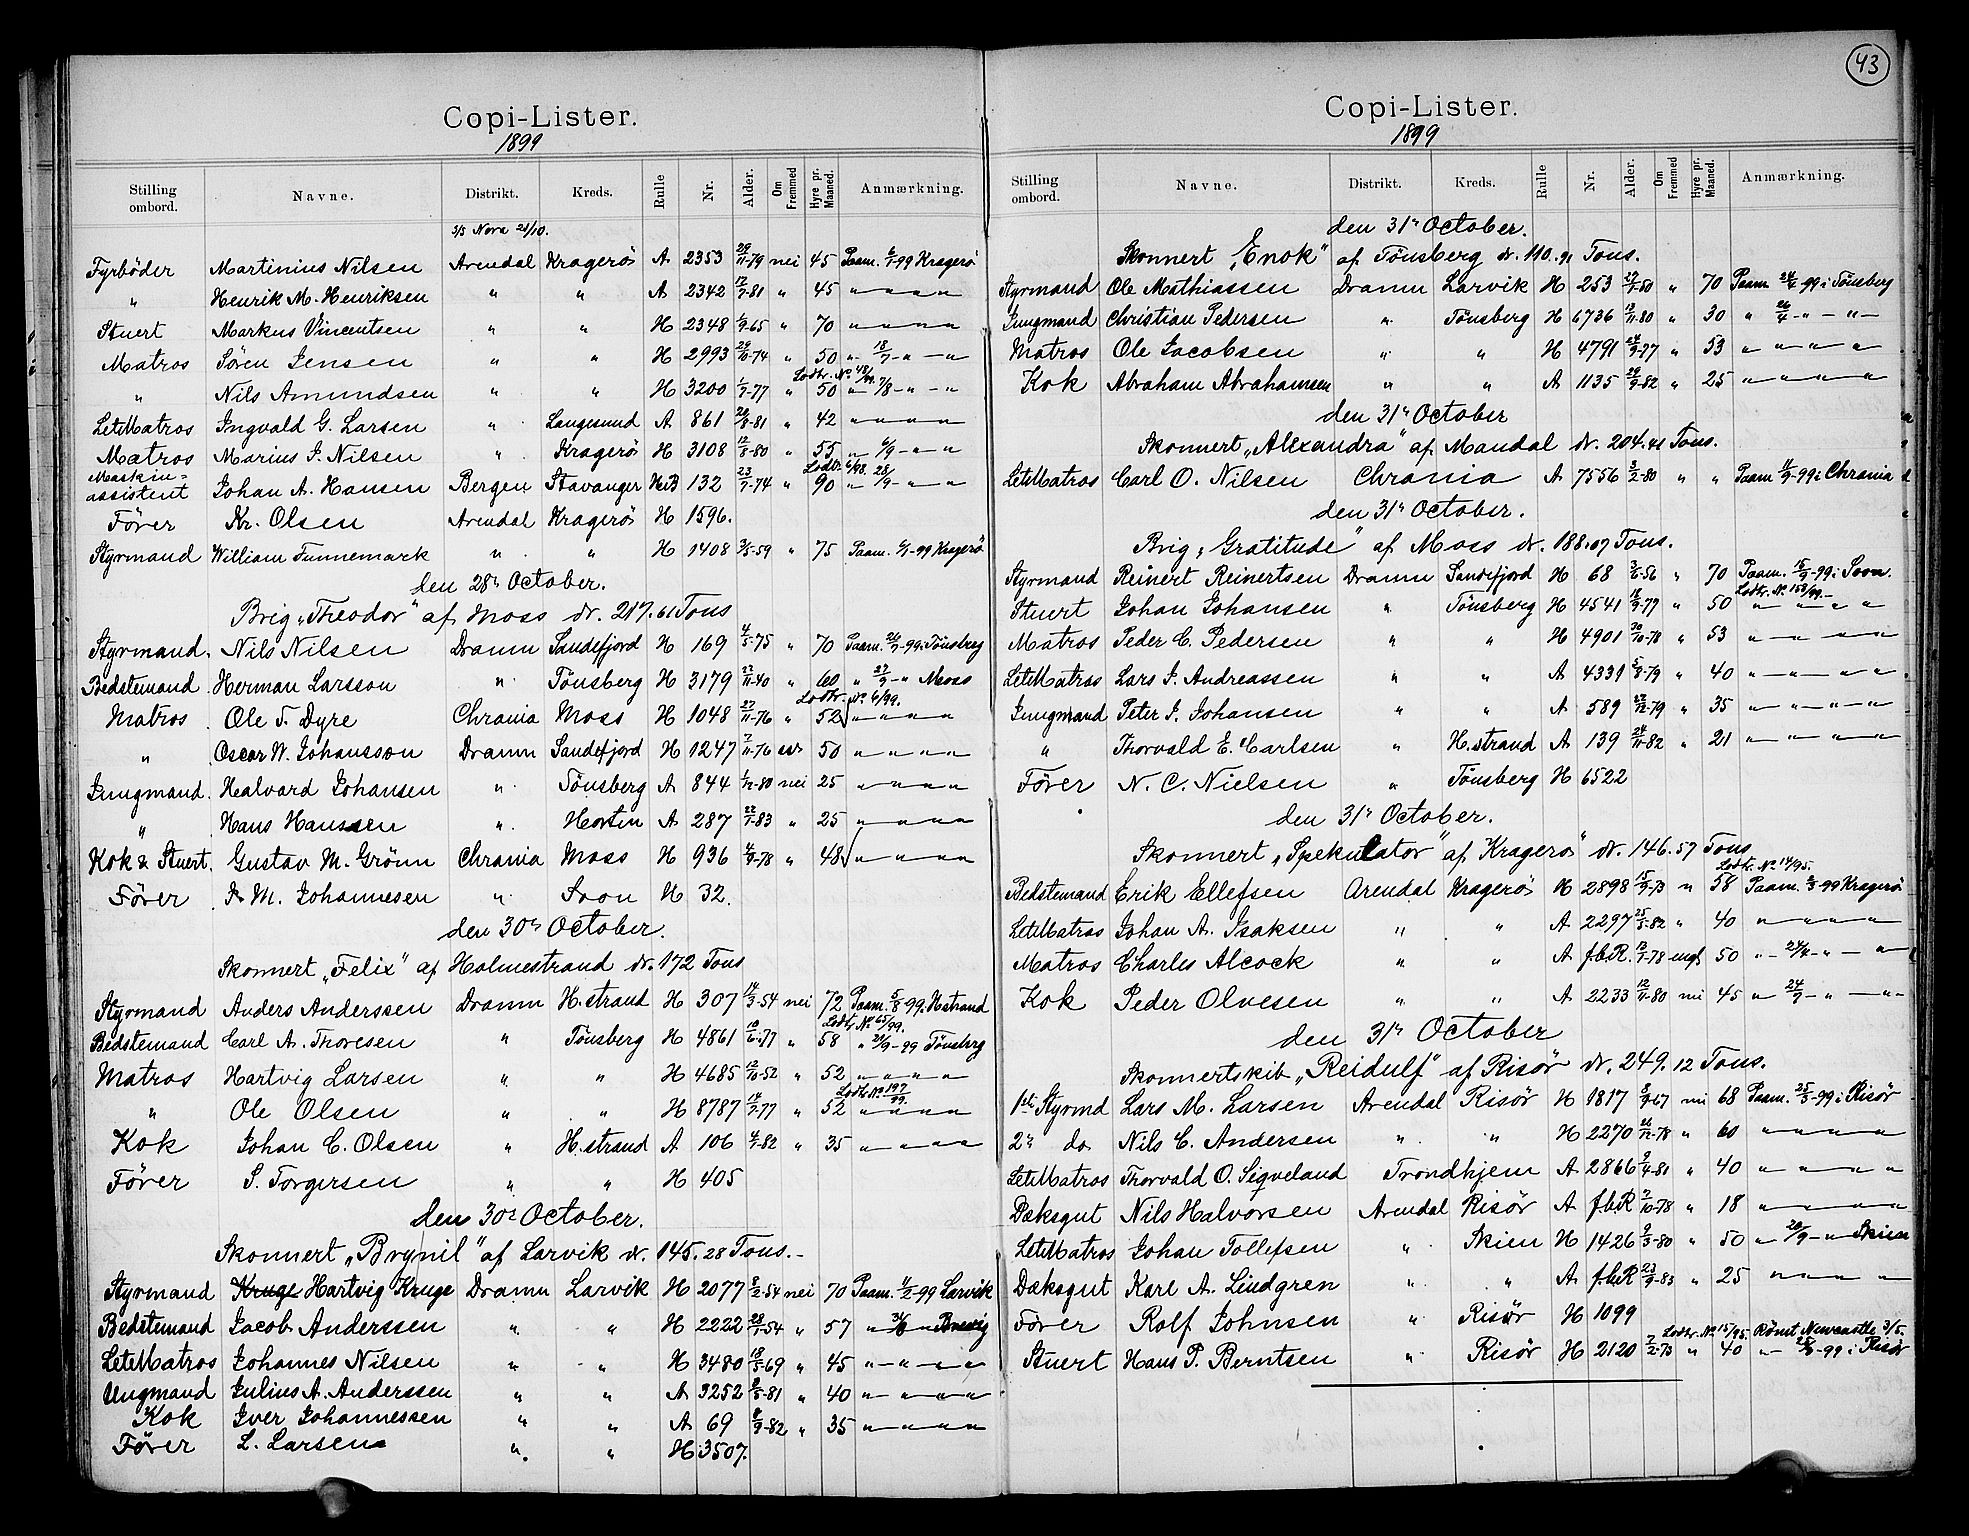 Copi-Lister.
1899
Stilling ombord. Navne. Distrikt. Kreds. Rulle Nr. Alder. Om Fremmed Hyre pr. Maaned. Anmærkning.
S/S Nora 21/10.
Fyrböder Martinius Nilsen Arendal Kragerö A 2353 29/11-79 nei 45 Paam. 6/1-99 Kragerö
" Henrik M. Henriksen " " A 2342 12/7-81 " 45 " " " "
Stuert Markus Vincentsen " " H 2348 1/9-65 " 70 " " " "
Matros Sören Jensen " " H 2993 29/10-74 " 50 " 18/7 - " - "
Lodtr. No 48/99.
" Nils Amundsen " " H 3200 1/7-77 " 50 " 7/8 - " - "
LetMatros Ingvald G. Larsen " Langesund A 861 20/8-81 " 42 " " " "
Matros Marius J. Nilsen " Kragerö H 3108 12/8-80 " 55 " 6/9 - " - "
Lodtr. 6/98.
Maskin-assistent Johan A. Hansen Bergen Stavanger H.B 132 23/7-74 " 90 " 28/9 - " - "
Förer Kr. Olsen Arendal Kragerö H 1596.
Styrmand William Funnemark " " H 1408 3/5-59 " 75 Paam. 6/1-99 Kragerö
den 28de October.
Brig "Theodor" af Moss dr. 217.61 Tons
Styrmand. Nils Nilsen Dramn Sandefjord H 169 4/5-75 " 70 Paam. 26/7-99 i Tönsberg
Bedstemand Herman Larsson " Tönsberg H 3179 22/11-40 " 60 " 27/9 - " Moss
Lodtr. No 6/99.
Matros Ole T. Dyre Chrania Moss H 1048 27/11-76 " 52 " " " "
" Oscar W. Johansson Dramn Sandefjord H 1247 7/11-76 sv 50 " " " "
Jungmand. Halvard Johansen " Tönsberg A 844 1/12-80 nei 25 " " " "
" Hans Hanssen " Horten A 287 22/7-83 " 25 " " " "
Kok & Stuert. Gustav M. Grönn Chrania Moss H 936 4/9-78 " 48 " " " "
Förer J. M. Johannesen " Soon H 32.
den 30de October.
Skonnert "Felix" af Holmestrand dr. 172 Tons
Styrmand Anders Anderssen Dramn H.strand H 307 14/3-54 nei 72 Paam. 5/8 99 i Hstrand
Lodtr No 65/99.
Bedstemand Carl A. Thoresen " Tönsberg H 4861 10/6-77 " 58 " 21/9-99 Tönsberg
Matros Hartvig Larsen " " H 4685 12/10-52 " 52 " " " "
Lodtr No 197/99.
" Ole Olsen " " H 8787 18/7-77 " 52 " " " "
Kok Johan C. Olsen " H.strand A 106 4/7-82 " 35 " " " "
Förer S. Torgersen " " H 405
den 30te October.
Skonnert "Brynil" af Larvik dr. 145.28 Tons.-
Styrmand Kruge Hartvig Kruge Dramn Larvik H 2077 8/2-54 nei 70 Paam. 11/2-99 Larvik
Bedstemand Jacob Anderssen " " H 2222 28/1-54 " 57 " 31/8 " Brevig
LetMatros Johannes Nilsen " " H 3480 18/5-69 " 45 " " " "
Ungmand Julius A. Anderssen " " A 3252 9/5-81 " 40 " " " "
Kok Iver Johannessen " " A 69 8/9-82 " 35 " " " "
Förer L. Larsen " " H 3507.
43
Copi-Lister.
1899
Stilling ombord. Navne. Distrikt. Kreds. Rulle Nr. Alder. Om Fremmed Hyre pr. Maaned. Anmærkning.
den 31te October.
Skonnert "Enok" af Tönsberg dr. 110.91 Tons.
Styrmand Ole Mathiassen Dramn Larvik H 253 27/7-50 " 70 Paam 24/2-99 i Tönsberg
Jungmand Christian Pedersen " Tönsberg H 6736 13/11-80 " 30 " 26/4 - " - " -
Matros Ole Jacobsen " " H 4791 28/9-77 " 53 " " " "
Kok Abraham Abrahamsen " " A 1135 29/9-82 " 25 " " " "
den 31te October
Skonnert "Alexandra" af Mandal dr. 204.41 Tons.
LetMatros Carl O. Nilsen Chrania A 7556 3/2-80 " " Paam 11/9-99 i Chrania
den 31te October.
Brig "Gratitude" af Moss dr. 188.07 Tons.
Styrmand Reinert Reinertsen Dramn Sandefjord H 68 3/6-56 " 70 Paam. 15/9-99 i Soon.
Lodtr. No 158/99.-
Stuert Johan Johansen " Tönsberg H 4541 18/9-77 " 50 " " " "
Matros Peder C. Pedersen " " H 4901 30/10-78 " 53 " " " "
LetMatros Lars J. Andreassen " " A 4331 5/8-79 " 40 " " " "
Jungmand Peter J. Johansen " " A 589 27/12-79 " 35 " " " "
" Thorvald E. Carlsen " H.strand A 139 28/11-82 " 21 " " " "
Förer N. C. Nielsen " Tönsberg H 6522
den 31te October.
Skonnert "Spekulator" af Kragerö dr. 146.57 Tons
Lodtr. No 14/95.
Bedstemand Erik Ellefsen Arendal Kragerö H 2898 15/9-73 " 58 Paam. 2/3-99 Kragerö
LetMatros Johan A. Isaksen " " A 2297 25/5-82 " 40 " " " "
Matros Charles Alcock " " A f.b.R. 12/7-78 engl 50 " 24/4 - " - "
Kok Peder Olvesen " " A 2233 12/11-80 nei 45 " 24/7 - " - "
den 31te October
Skonnertskib "Reidulf" af Risör dr. 249.12 Tons.
1ste Styrmd Lars M. Larsen Arendal Risör H 1817 8/9-67 nei 68 Paam. 25/3-99 i Risör
2de do. Nils C. Andersen " " H 2270 26/12-78 " 60 " " " "
LetMatros Thorvald O. Sigveland Trondhjem A 2866 9/4-81 " 40 " " " "
Dæksgut Nils Halvorsen Arendal Risör A f.b.R 7/10-78 " 18 " " " "
LetMatros Johan Tollefsen " Skien H 1426 9/3-80 " 50 " 20/9 - " Skien
Dæksgut Karl A. Lindgren " " A f.b.R 23/9-83 " 25 " " " "
Förer Rolf Johnsen " Risör H 1099
Lodtr. No 15/95. Römt Newcastle 3/5.
Stuert Hans P. Berntsen " Risör H 2120 7/2-73 " 40 " 25/3-99 i Risör